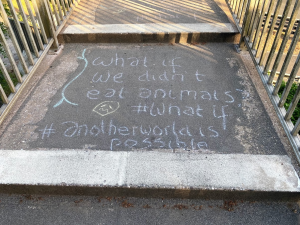 what if
we didn't
eat animals
#what if
#anotherworld is
possible